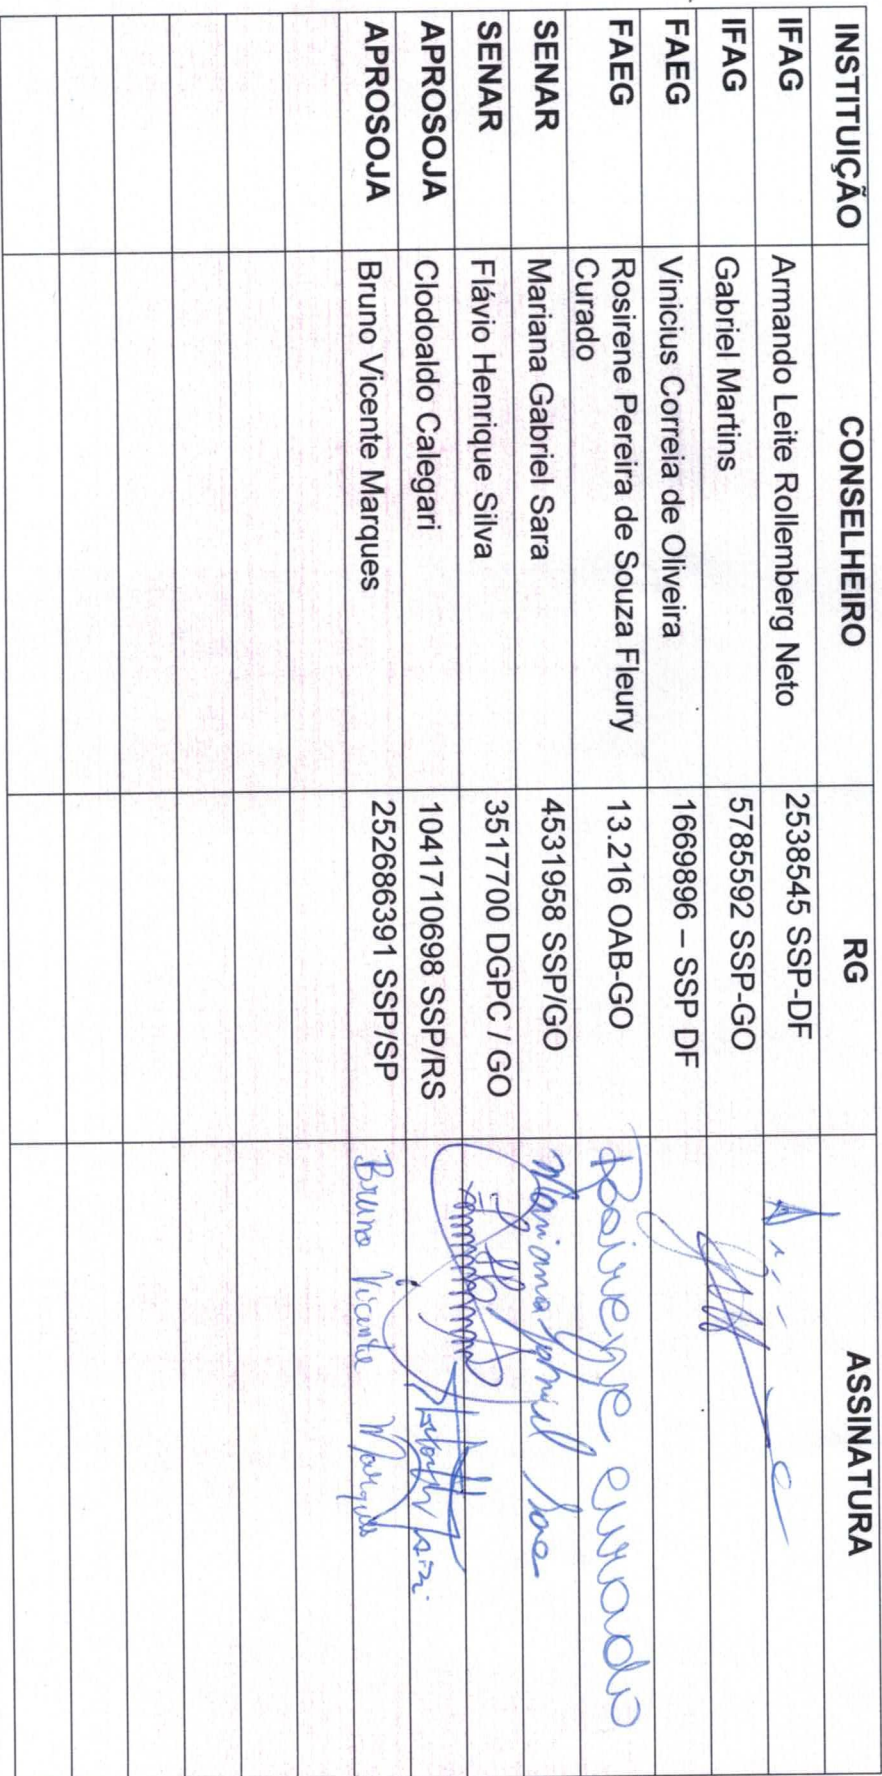 INSTITUIÇÃO CONSELHEIRO RG ASSINATURA
IFAG Armando Leite Rollemberg Neto 2538545 SSP-DF
IFAG Gabriel Martins 5785592 SSP-GO
FAEG Vinicius Correia de Oliveira 1669896 – SSP DF
FAEG Rosirene Pereira de Souza Fleury 13.216 OAB-GO Rosirene Curado
Curado
SENAR Mariana Gabriel Sara 4531958 SSP/GO Mariana Gabriel
SENAR Flávio Henrique Silva 3517700 DGPC / GO
APROSOJA Clodoaldo Calegari 1041710698 SSP/RS
APROSOJA Bruno Vicente Marques 252686391 SSP/SP Bruno Vicente Marques